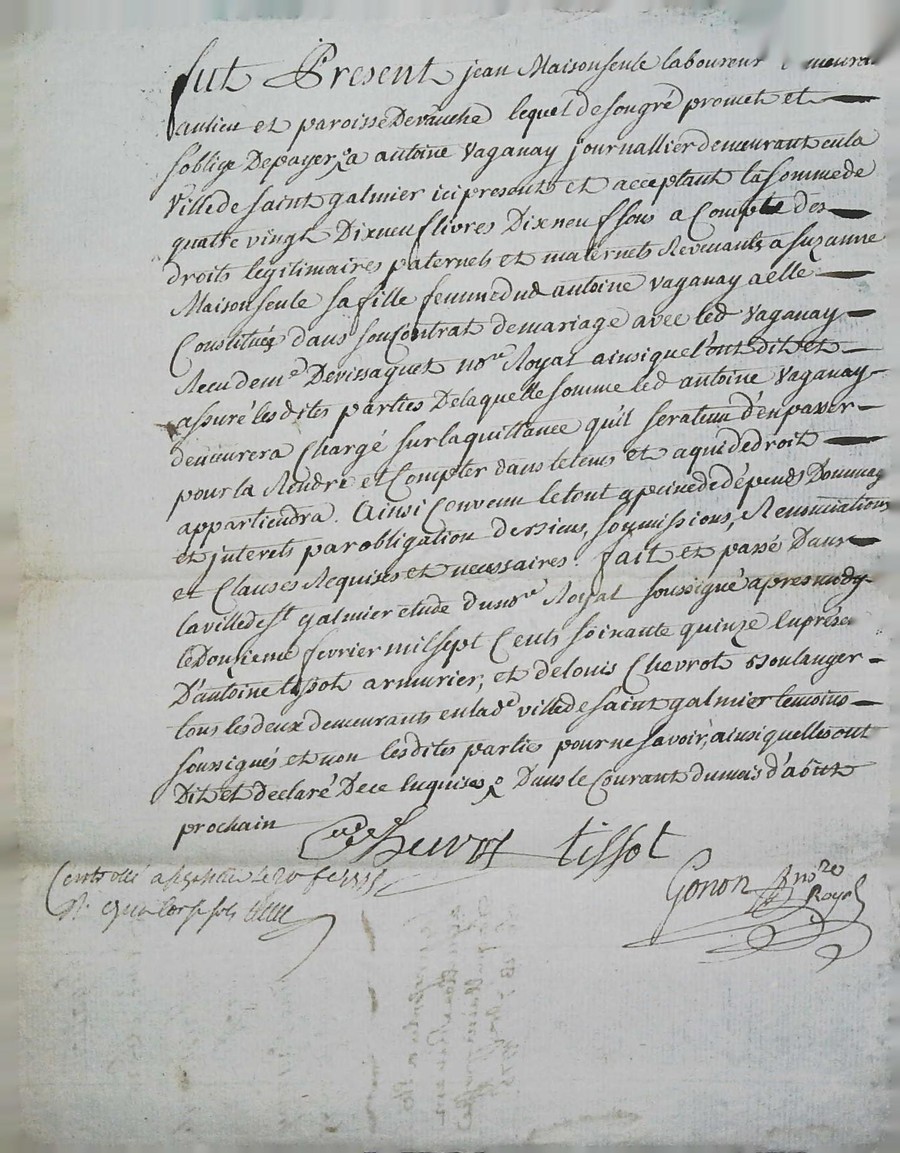 fut Present jean Maisonseule laboureur
au lieu et paroisse De vauche lequel de son gré promet et
soblige De payer a antoine Vaganay journallier demeurant en la
Ville de saint galmier ici present et acceptant la somme de
quatre vingt Dixneuf livres Dixneuf sous a Compte des
droits legitimaires paternels et maternels Revenants a suzanne
Maisonseule sa fille femme dud antoine vaganay a elle
Constitués dans son Contrat de mariage avec led Vaganay
Recu de me Devissaguet nore Royal ainsi que l'ont dit et
assuré les dites parties De laquelle somme led antoine Vaganay
demeurera Chargé sur la quittance qu'il sera tenu d'en passer
pour la Rendre et Compter dans le tems et a qui de droit
appartiendra. Ainsi Convenu le tout a peine de dépends Dommag
et interets par obligation des siens, soumissions, Renonciations
et Clauses Requises et necessaires. fait et passé Dans
la ville de st galmier etude du nore Royal soussigné apres mody
le Douzieme fevrier mil sept Cents soixante quinze en prése
D'antoine tissot armurier, et de louis Chevrot Boulanger
tous les deux demeurants en lade ville de saint galmier temoins
soussignés et non les dites partie pour ne savoir, ainsi quelles ont
Dit et Declaré De ce enquises Dans le Courant du mois d'août
prochain
Chevrot tissot
Gonon nore
Royal
Controllé a st galmier le 20 fe 1775
R. quatorze sols